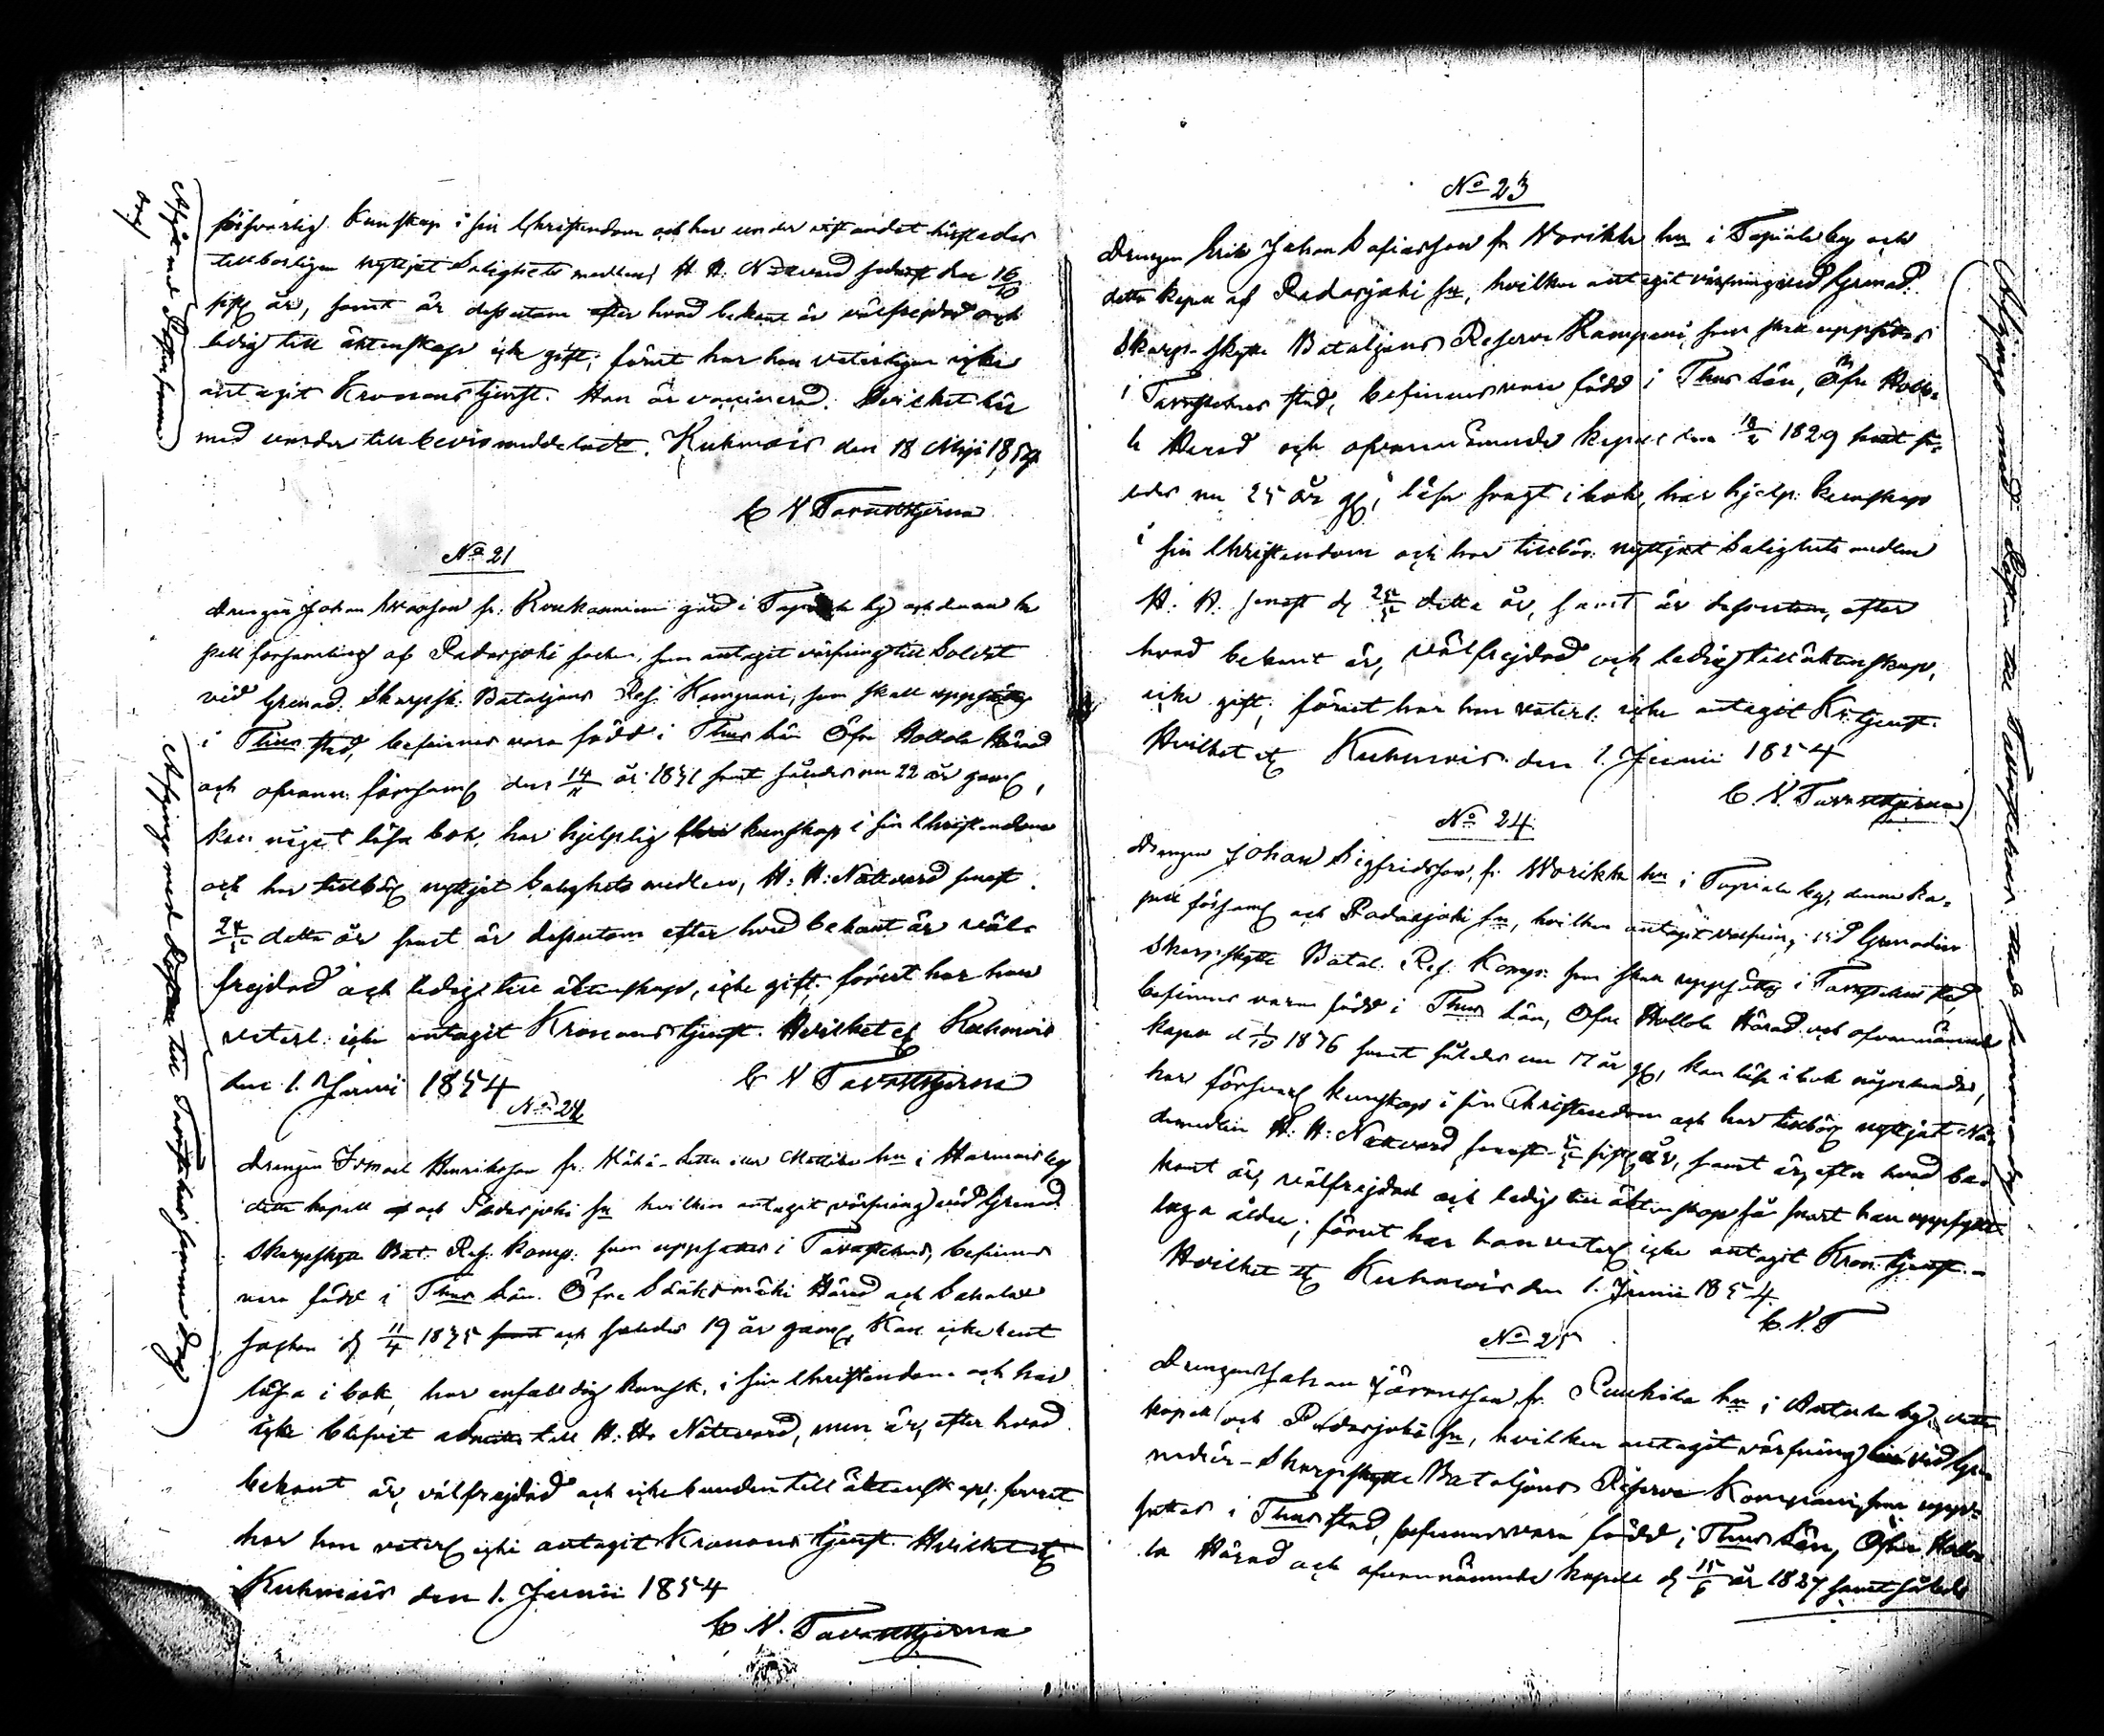 försvarlig kunskap i sin Christendom och har under vistandet härstädes
tillbörligen nyttjat Salighets medlen H. H. Nattvard senast den 16/10
sistl. år, samt är dessutom efter hvad bekant är välfrejdad och
ledig till äktenskap icke gift; förut har han veterligen icke
antagit Kronans tjenst. Han är vaccinerad. Hvilket här
med varder till bevis meddeladt. Kuhmois den 18 Maji 1854
C N Tavaststjerna
Afgick med Posten samma
dag
No 21
Drengen Johan fr. gård i by och denna ka
pell församling af Padasjoki socken, som antagit värfning till Soldat
vid Grenad. Skarpsk. Bataljons Res. Kompani, som skall uppsättas
i Thus stad, befinnes vara född i Thus Län Öfre Hollola Härad
och ofvann. församl. den 14/11 år 1831 samt således nu 22 år gaml,
kan något läsa bok, har hjelplig kunskap i sin Christendom
och har tillbörl. nyttjat Salighets medlen, H: H: Nattvard senast
detta år samt är dessutom efter hvad bekant är väl-
frejdad och ledig till äktenskap, icke gift; förut har han
veterl. icke antagit Kronans tjenst. Hvilket etc Kuhmois
den 1. Junii 1854 C N Tavaststjerna
No 22
Drengen Henriksson fr. hn i by
detta kapell och Padasjoki sn hvilken antagit värfning vid Grenad.
Skarpskytte Bat. Res. Komp. som uppsättes i Tavastehus, befinnes
vara född i Thus Län. Öfre Sääksmäki Härad och Sahalax
socken d 11/4 1835 och således 19 år gaml. Kan icke rent
läsa i bok, har enfaldig kunsk. i sin Christendom och har
icke blifvit till H: H: Nattvard, men är, efter hvad
bekant är, välfrejdad och icke bunden till äktenskap; förut
har han veterl. icke antagit Kronans tjenst. Hvilket etc
Kuhmois den 1. Junii 1854
C N. Tavaststjerna
Afginge med Posten till Tavastehus samma dag
No 23
Drengen Erik Johan fr Worikka hn i Tapiala by och
detta kapell af Padasjoki sn, hvilken antagit värfning vid Grenad.
Skarp-skytte Bataljons Reserve Kompani, som skall uppsättas
i Tavastehus stad, befinnes vara född i Thus Län, Öfre Hollo-
la Härad och ofvannämnde kapell den 1829 samt så-
ledes nu 25 år gl, läser svagt i bok, har hjelp. kunskap
i sin Christendom och har tillbör. nyttjat Salighets medlen
H. H. senast d detta år, samt är dessutom, efter
hvad bekant är, välfrejdad och ledig till äktenskap,
icke gift; förut har han veterl. icke antagit Kr: tjenst.
Hvilket etc Kuhmois den 1. Junii 1854
C. N. Tavaststjerna
No 24.
Drengen Johan Sigfridsson, fr. Worikka hn i Tapiala by, denna ka-
pell församl och Padasjoki sn, hvilken antagit värfning vid Grenadier
Skarpskytte Batal. Res. Komp: som skall uppsättas i Tavastehus stad,
befinnes vara född i Thus Län, Öfre Hollola Härad och ofvannämnde
kapell d 1/10 1836 samt således nu 17 år gl, kan läsa i bok någorlunda,
har försvarl kunskap i sin Christendom och har tillbörl nyttjat Nå-
demedlen H: H: Nattvard, senast sistl år, samt är, efter hvad be-
kant är, välfrejdad och ledig till äktenskap så snart han uppfyllt
laga ålder; förut har han veterl icke antagit Kron: tjenst. -
Hvilket etc Kuhmois den 1. Junii 1854.
C. N. T
No 25
Drengen Johan Göransson, fr. hn i by, detta
kapell och Padasjoki sn, hvilken antagit värfning vid Gre-
nadier-Skarpskytte Bataljons Reserve Kompani, som upp-
sättes i Thus stad, befinnes vara född i Thus Län, Öfre Hollo-
la Härad och ofvannämnde kapell d 15/6 år 1827 samt således
Afginge med Posten till Tavastehus stad samma dag